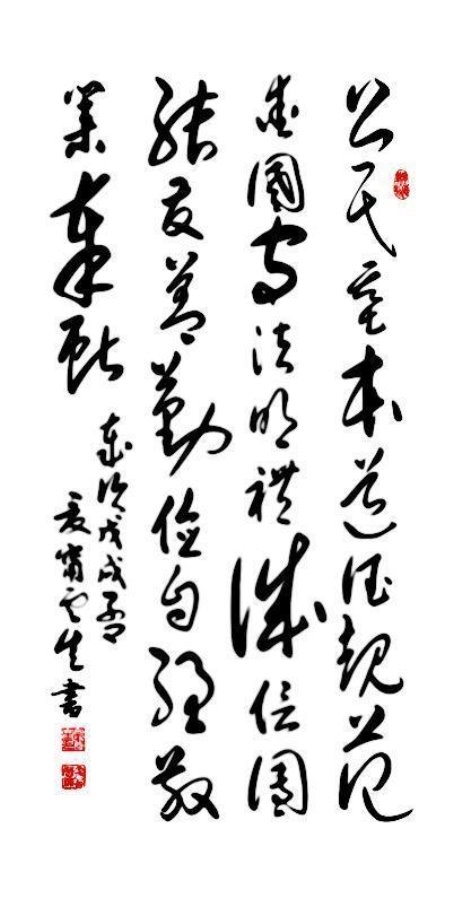 公民基本道德規范
愛國守法明禮誠信團
結友善勤儉自強敬
業奉獻
歲次戊戌
書